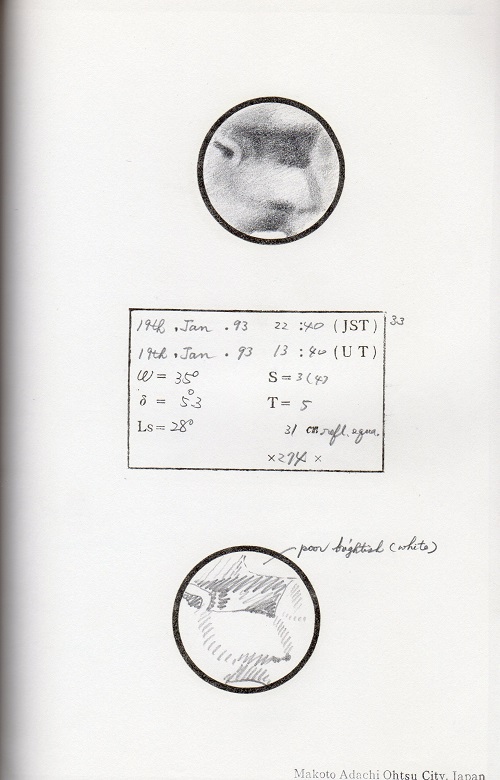 19th, Jan . 93 22 : 40 (JST) 33
19th, Jan . 93 13 : 40 (UT)
ω = 35° S = 3(4)
δ = 5°.3 T = 5
Ls = 28° 31 cm refl. equa.
×274 ×
poor brightish (white)
Makoto Adachi Ohtsu City, Japan